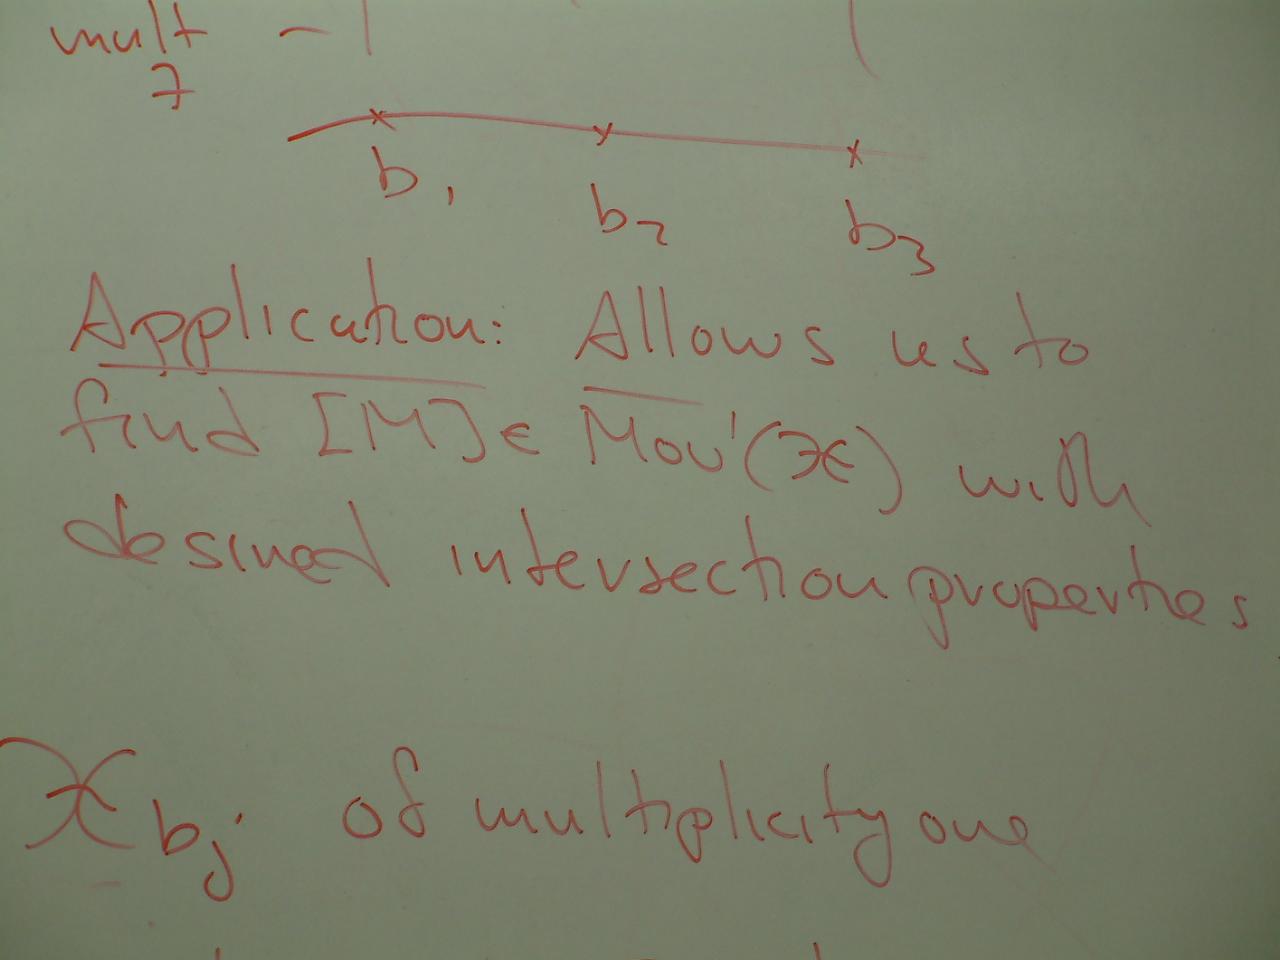 mult
7
b1
b2
b3
Application: Allows us to
find [M] ∈ Mov'(𝒳) with
desired intersection properties
𝒳bj of multiplicity one